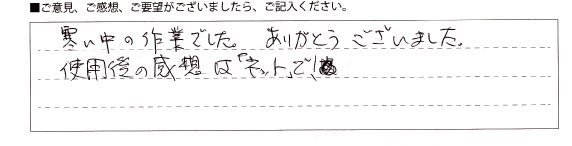 ■ご意見、ご感想、ご要望がございましたら、ご記入ください。
寒い中の作業でした。ありがとうございました。
使用後の感想は「ネット」で!